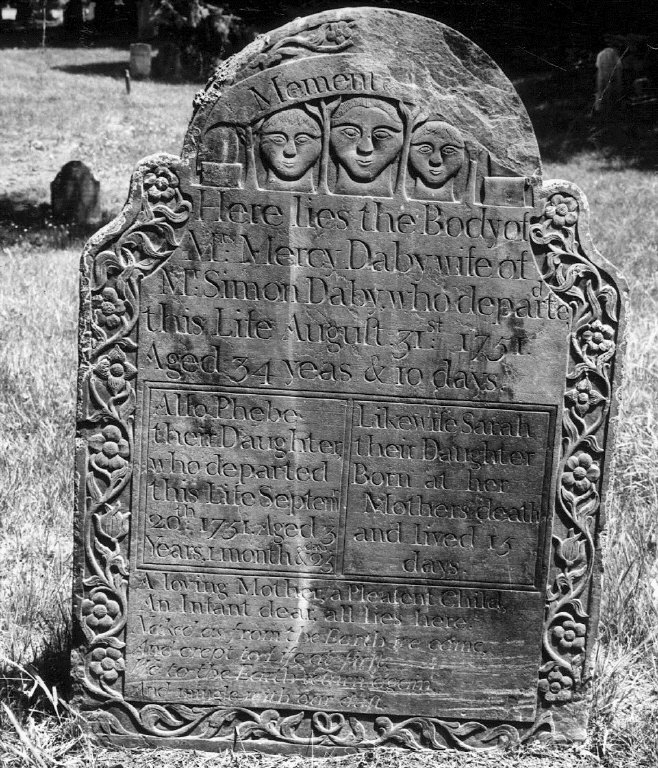 Memento
Here lies the Body of
Mrs. Mercy Daby wife of
Mr. Simon Daby. who departed
this Life August 31st 1751.
Aged 34 yeas & 10 days.
Alſo Phebe
their Daughter
who departed
this Life Septem
20th 1751. Aged 3
Years, 1 month & 23
Likewiſe Sarah
their Daughter
Born at her
Mothers death
and lived 15
days.
A loving Mother, a Pleaſent Child,
An Infant dear, all lies here.
Naked as from the Earth we came,
And crept to Life at firſt,
We to the Earth return again
And mingle with our duſt.